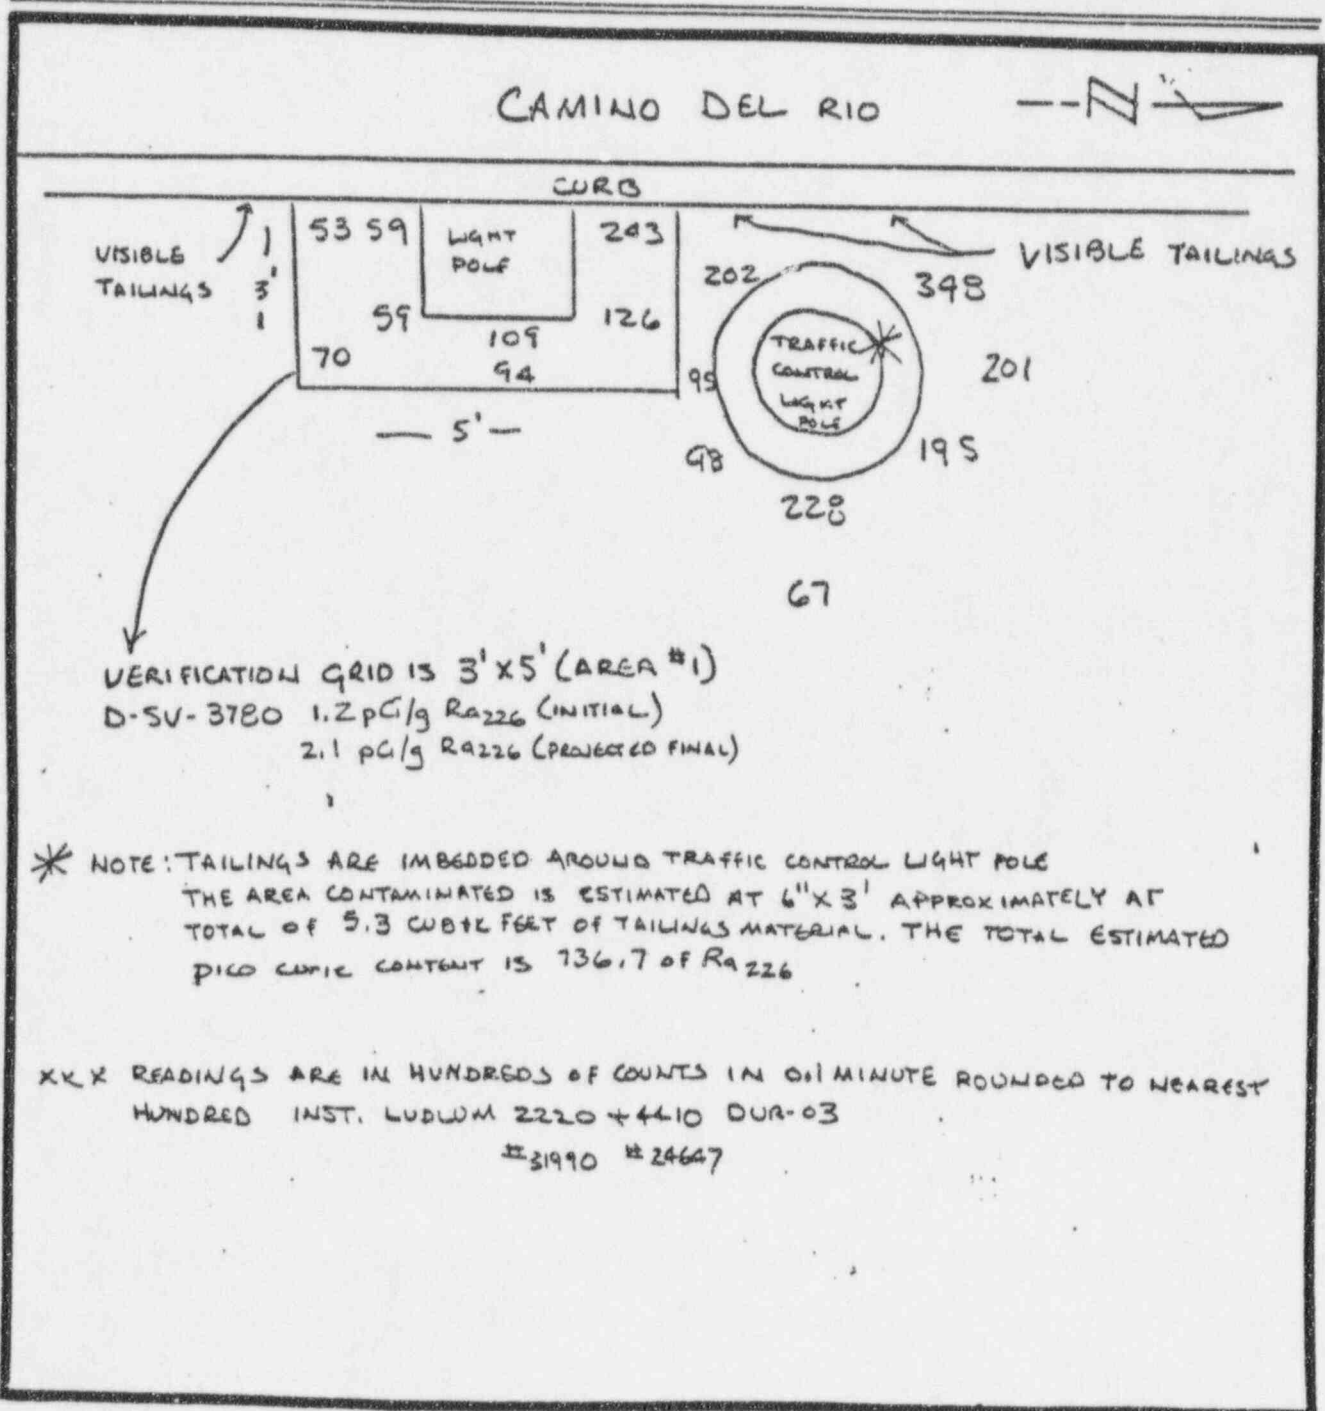 CAMINO DEL RIO
--N
CURB
VISIBLE
TAILINGS
3'
53 59
LIGHT
POLE
243
59
126
109
70
94
5'
202
348
VISIBLE TAILINGS
TRAFFIC
CONTROL
LIGHT
POLE
*
95
201
98
195
228
67
VERIFICATION GRID IS 3'X5' (AREA #1)
D-SV-3780 1.2 pCi/g Ra226 (INITIAL)
2.1 pCi/g Ra226 (PROJECTED FINAL)
* NOTE: TAILINGS ARE IMBEDDED AROUND TRAFFIC CONTROL LIGHT POLE
THE AREA CONTAMINATED IS ESTIMATED AT 6"X3' APPROXIMATELY AT
TOTAL OF 5.3 CUBIC FEET OF TAILINGS MATERIAL. THE TOTAL ESTIMATED
PICO CURIE CONTENT IS 736.7 OF Ra226
XXX READINGS ARE IN HUNDREDS OF COUNTS IN 0.1 MINUTE ROUNDED TO NEAREST
HUNDRED INST. LUDLUM 2220 + 4410 DUR-03
#31990 #24647